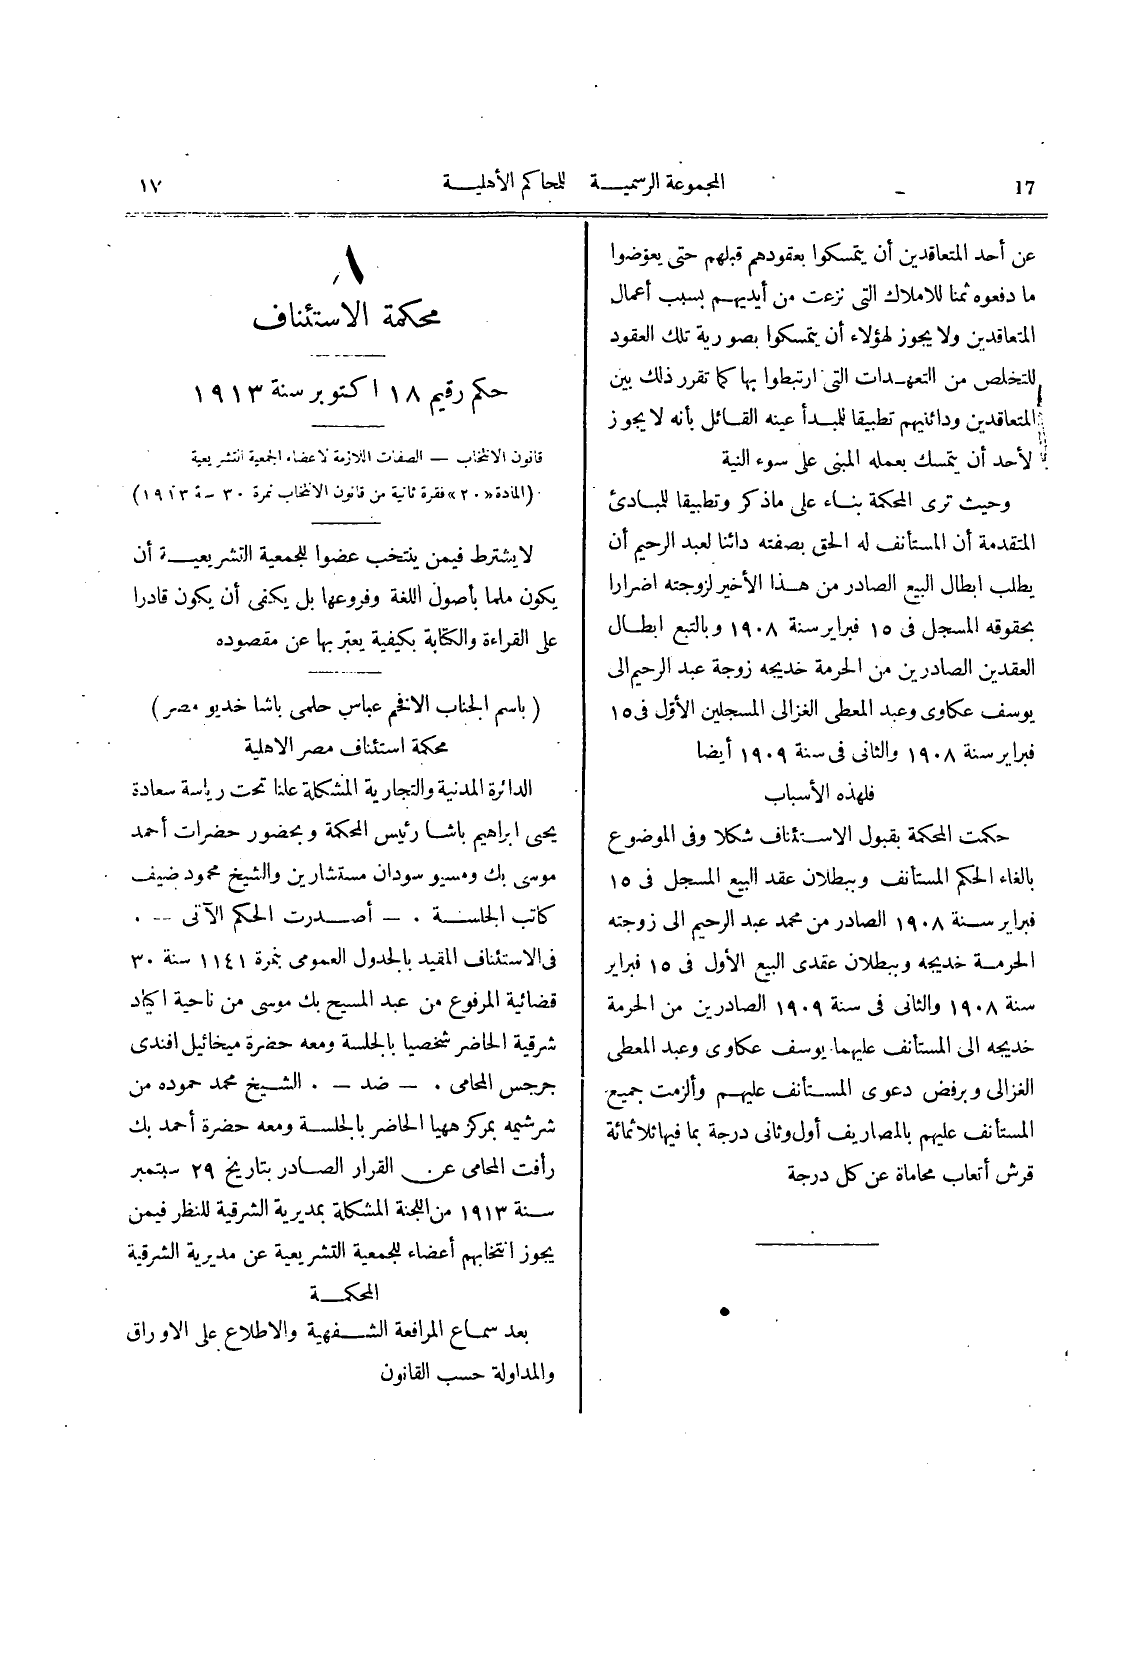 17 المجموعة الرسمية للمحاكم الأهلية ١٧
عن أحد المتعاقدين أن يتمسكوا بعقودهم قبلهم حتى يعوّضوا
ما دفعوه ثمنا للاملاك التى نزعت من أيديهم بسبب أعمال
المتعاقدين ولا يجوز لهؤلاء أن يتمسكوا بصورية تلك العقود
للتخلص من التعهدات التى ارتبطوا بها كما تقرر ذلك بين
المتعاقدين ودائنيهم تطبيقا للمبدأ عينه القائل بأنه لا يجوز
لأحد أن يتمسك بعمله المبنى على سوء النية
وحيث ترى المحكمة بناء على ماذكر وتطبيقا للمبادئ
المتقدمة أن المستأنف له الحق بصفته دائنا لعبد الرحيم أن
يطلب ابطال البيع الصادر من هذا الأخير لزوجته اضرارا
بحقوقه المسجل فى ١٥ فبراير سنة ١٩٠٨ وبالتبع ابطال
العقدين الصادرين من الحرمة خديجه زوجة عبد الرحيم الى
يوسف عكاوى وعبد المعطى الغزالى المسجلين الأوّل فى ١٥
فبراير سنة ١٩٠٨ والثانى فى سنة ١٩٠٩ أيضا
فلهذه الأسباب
حكمت المحكمة بقبول الاستئناف شكلا وفى الموضوع
بالغاء الحكم المستأنف وببطلان عقد البيع المسجل فى ١٥
فبراير سنة ١٩٠٨ الصادر من محمد عبد الرحيم الى زوجته
الحرمة خديجه وببطلان عقدى البيع الأول فى ١٥ فبراير
سنة ١٩٠٨ والثانى فى سنة ١٩٠٩ الصادرين من الحرمة
خديجه الى المستأنف عليهما يوسف عكاوى وعبد المعطى
الغزالى وبرفض دعوى المستأنف عليهم وألزمت جميع
المستأنف عليهم بالمصاريف أول وثانى درجة بما فيها ثلاثمائة
قرش أتعاب محاماة عن كل درجة
٨
محكمة الاستئناف
حكم رقيم ١٨ اكتوبر سنة ١٩١٣
قانون الانتخاب — الصفات اللازمة لاعضاء الجمعية التشريعية
(المادة «٢٠» فقرة ثانية من قانون الانتخاب نمرة ٣٠ سنة ١٩١٣)
لايشترط فيمن ينتخب عضوا للجمعية التشريعية أن
يكون ملما بأصول اللغة وفروعها بل يكفى أن يكون قادرا
على القراءة والكتابة بكيفية يعتبر بها عن مقصوده
( باسم الجناب الافخم عباس حلمى باشا خديو مصر )
محكمة استئناف مصر الاهلية
الدائرة المدنية والتجارية المشكلة علنا تحت رياسة سعادة
يحيى ابراهيم باشا رئيس المحكمة وبحضور حضرات أحمد
موسى بك ومسيو سودان مستشارين والشيخ محمود ضيف
كاتب الجلسة . — أصدرت الحكم الآتى — .
فى الاستئناف المقيد بالجدول العمومى بنمرة ١١٤١ سنة ٣٠
قضائية المرفوع من عبد المسيح بك موسى من ناحية اكياد
شرقية الحاضر شخصيا بالجلسة ومعه حضرة ميخائيل افندى
جرجس المحامى . — ضد — . الشيخ محمد حموده من
شرشيمه بمركز ههيا الحاضر بالجلسة ومعه حضرة أحمد بك
رأفت المحامى عن القرار الصادر بتاريخ ٢٩ سبتمبر
سنة ١٩١٣ من اللجنة المشكلة بمديرية الشرقية للنظر فيمن
يجوز انتخابهم أعضاء للجمعية التشريعية عن مديرية الشرقية
المحكمة
بعد سماع المرافعة الشفهية والاطلاع على الاوراق
والمداولة حسب القانون